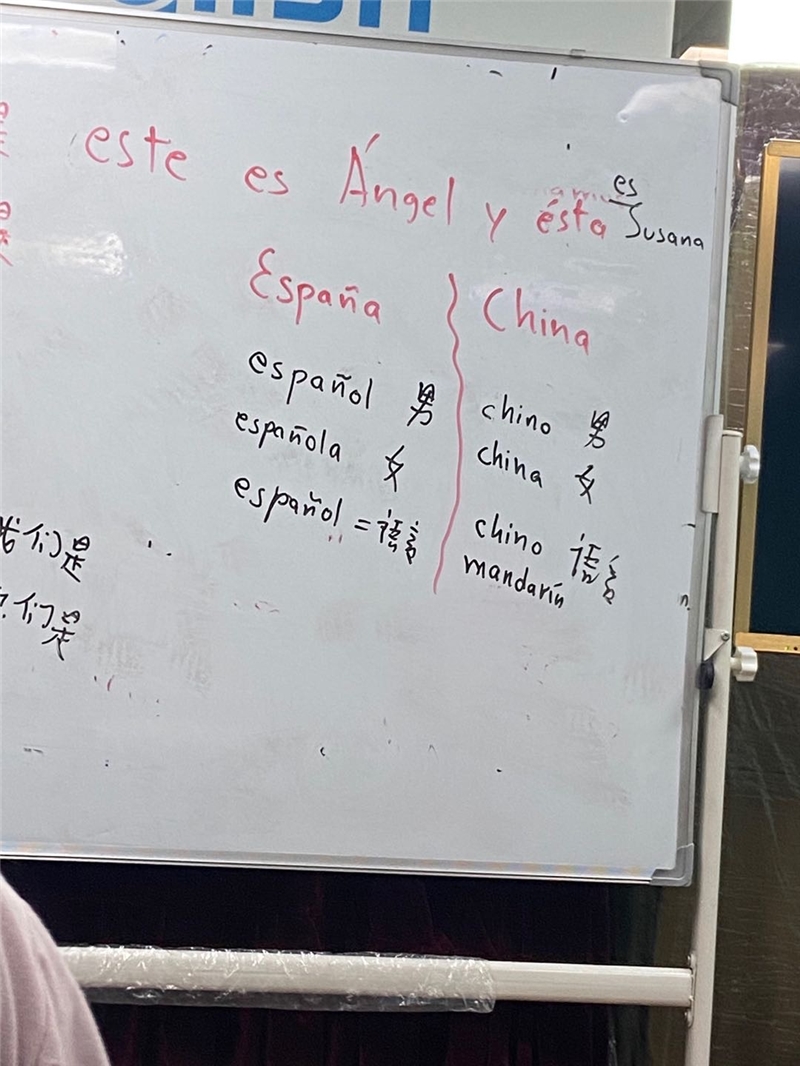 este es Ángel y ésta es Susana
España China
español 男 chino 男
española 女 china 女
español = 语言 chino 语言
mandarín
我们是
们是